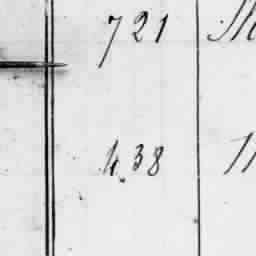 721
438